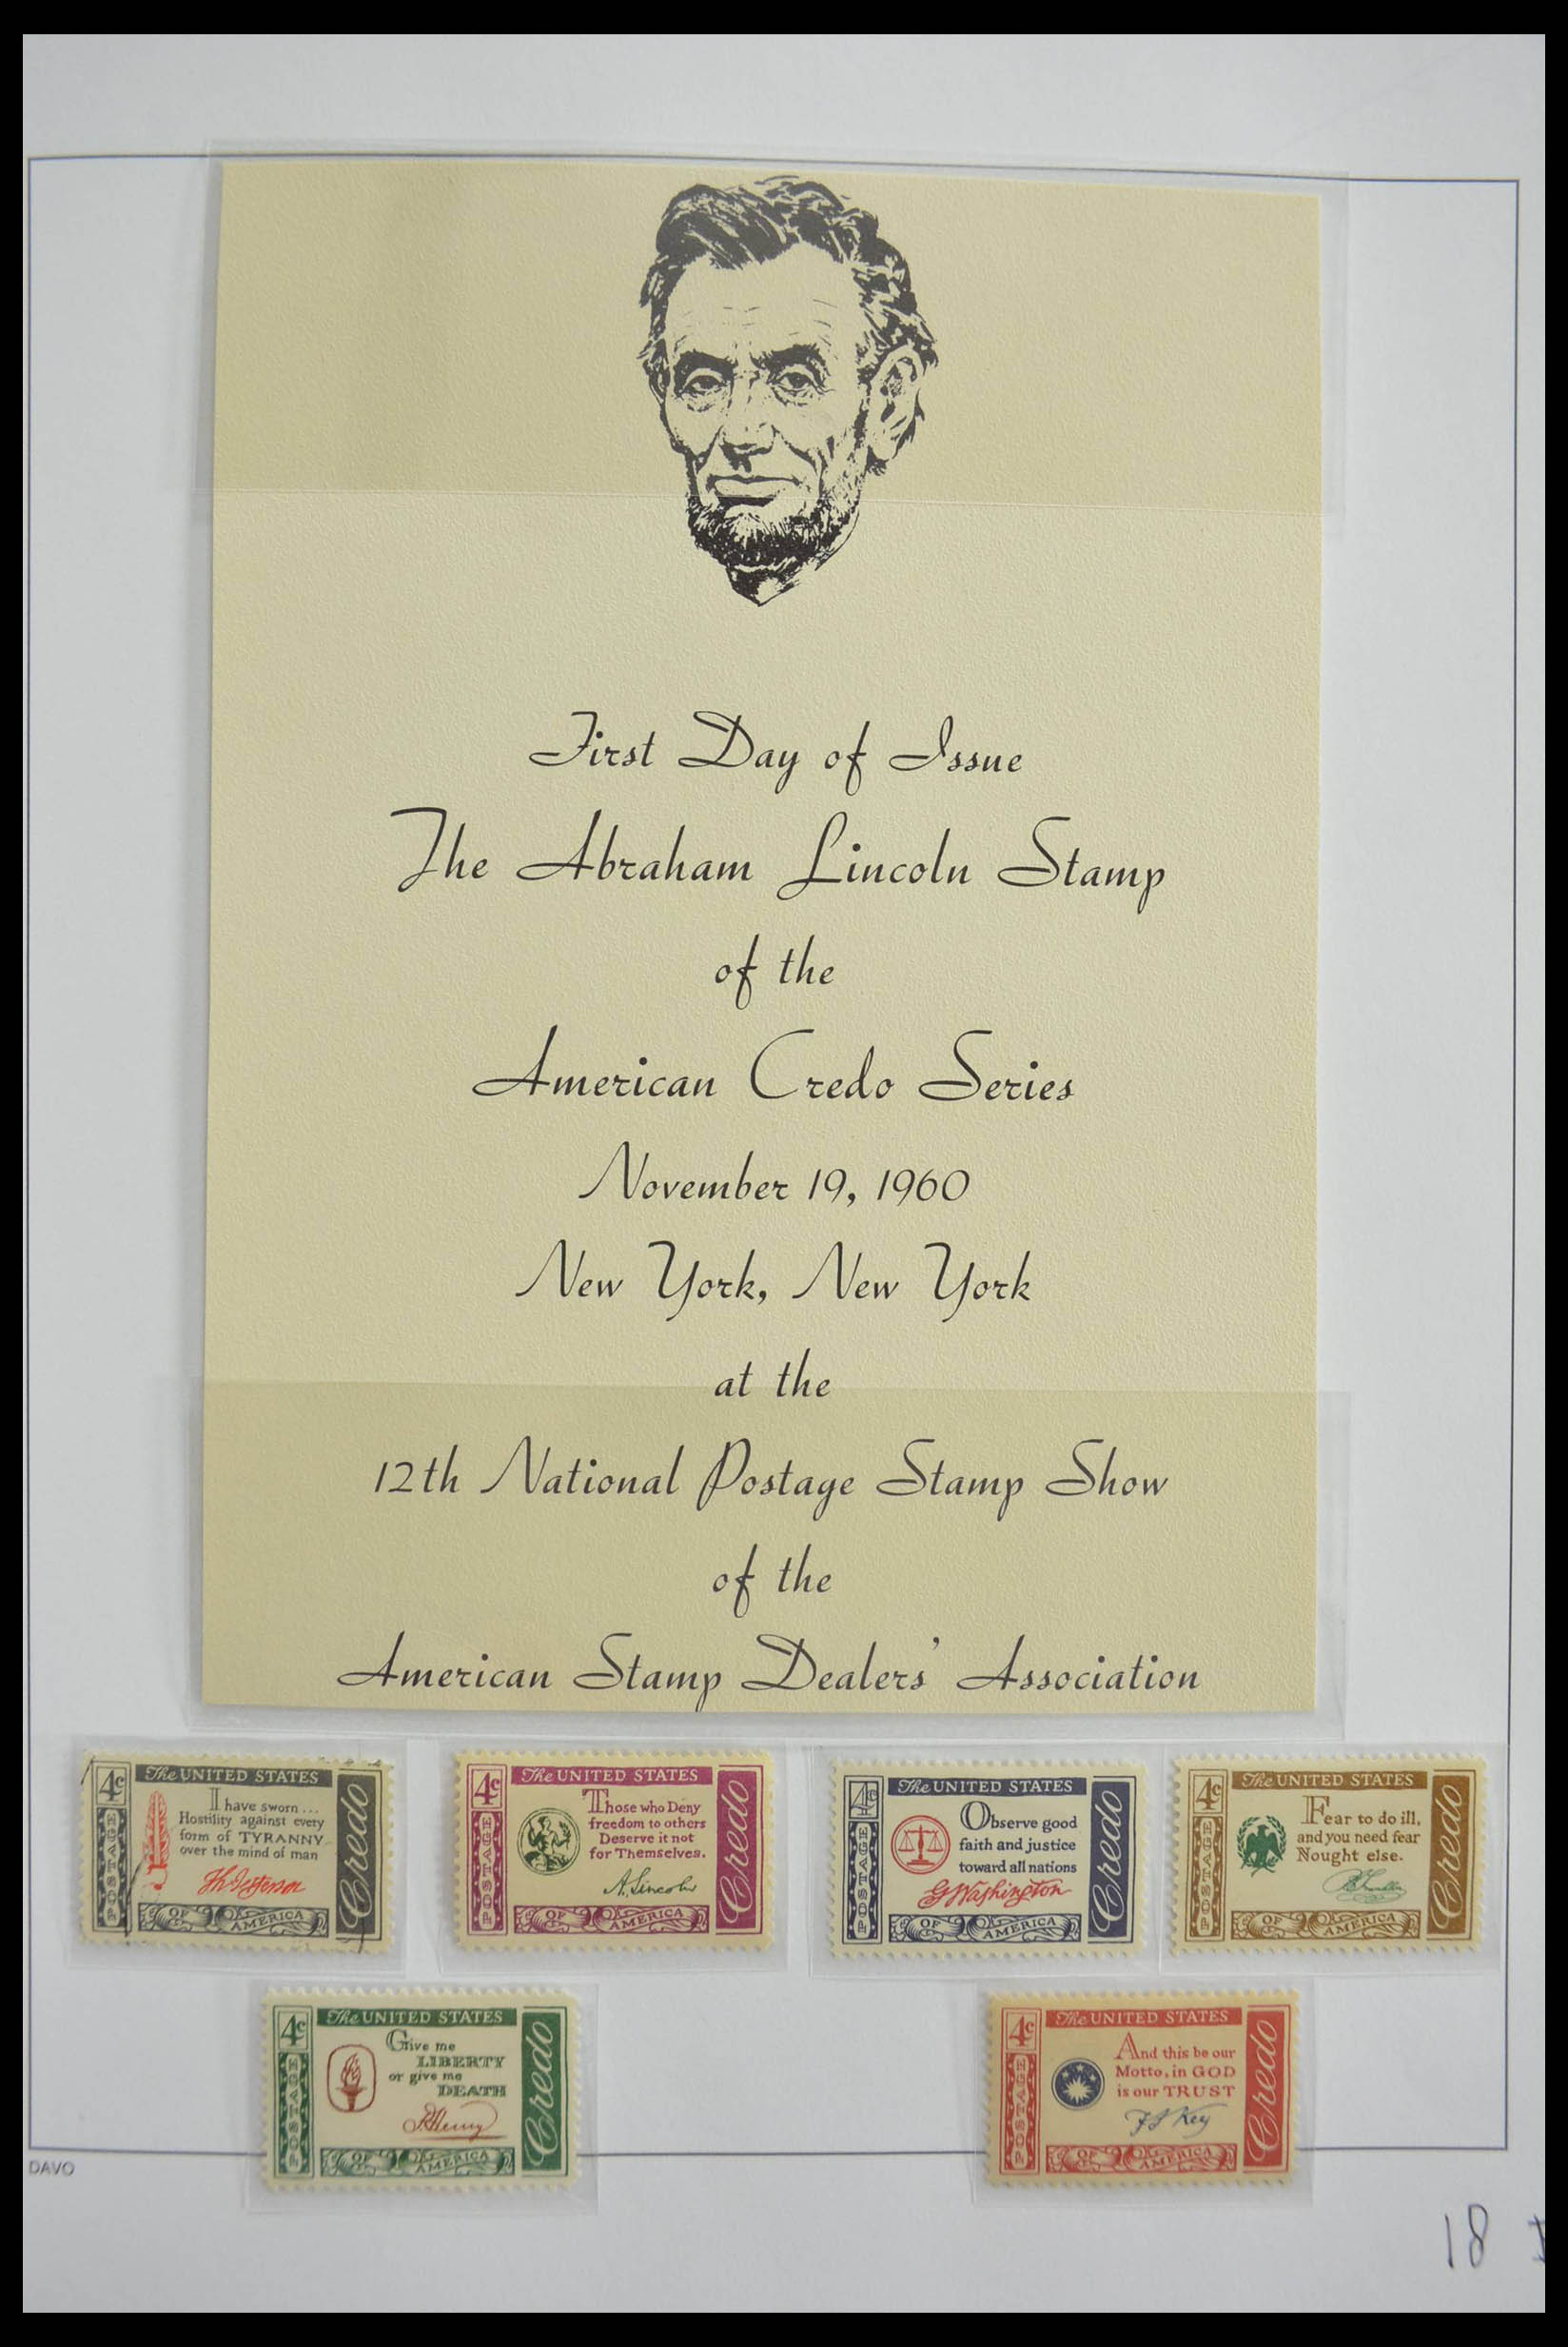 First Day of Issue
The Abraham Lincoln Stamp
of the
American Credo Series
November 19, 1960
New York, New York
at the
12th National Postage Stamp Show
of the
American Stamp Dealers' Association
4c
The UNITED STATES
POSTAGE
I have sworn...
Hostility against every
form of TYRANNY
over the mind of man
Th Jefferson
OF AMERICA
Credo
4c
The UNITED STATES
POSTAGE
Those who Deny
freedom to others
Deserve it not
for Themselves.
A. Lincoln
OF AMERICA
Credo
4c
The UNITED STATES
POSTAGE
Observe good
faith and justice
toward all nations
G Washington
OF AMERICA
Credo
4c
The UNITED STATES
POSTAGE
Fear to do ill,
and you need fear
Nought else.
B Franklin
OF AMERICA
Credo
4c
The UNITED STATES
POSTAGE
Give me
LIBERTY
or give me
DEATH
P. Henry
OF AMERICA
Credo
4c
The UNITED STATES
POSTAGE
And this be our
Motto, in GOD
is our TRUST
F S Key
OF AMERICA
Credo
DAVO
18